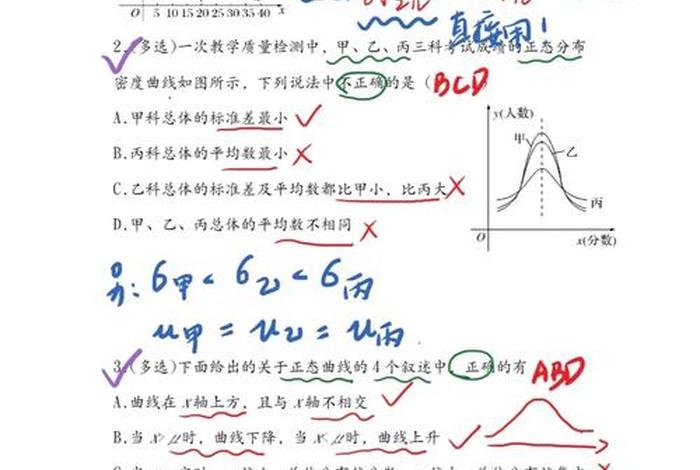 O 5 10 15 20 25 30 35 40 x
直接用!
2.(多选)一次教学质量检测中,甲、乙、丙三科考试成绩的正态分布
密度曲线如图所示,下列说法中不正确的是( BCD
A.甲科总体的标准差最小 ✓
B.丙科总体的平均数最小 ×
C.乙科总体的标准差及平均数都比甲小,比丙大 ×
D.甲、乙、丙总体的平均数不相同 ×
y(人数)
甲
乙
丙
O
x(分数)
另: σ甲 < σ乙 < σ丙
μ甲 = μ乙 = μ丙
3.(多选)下面给出的关于正态曲线的4个叙述中,正确的有 ABD
A.曲线在x轴上方,且与x轴不相交 ✓
B.当x>μ时,曲线下降,当x<μ时,曲线上升 ✓